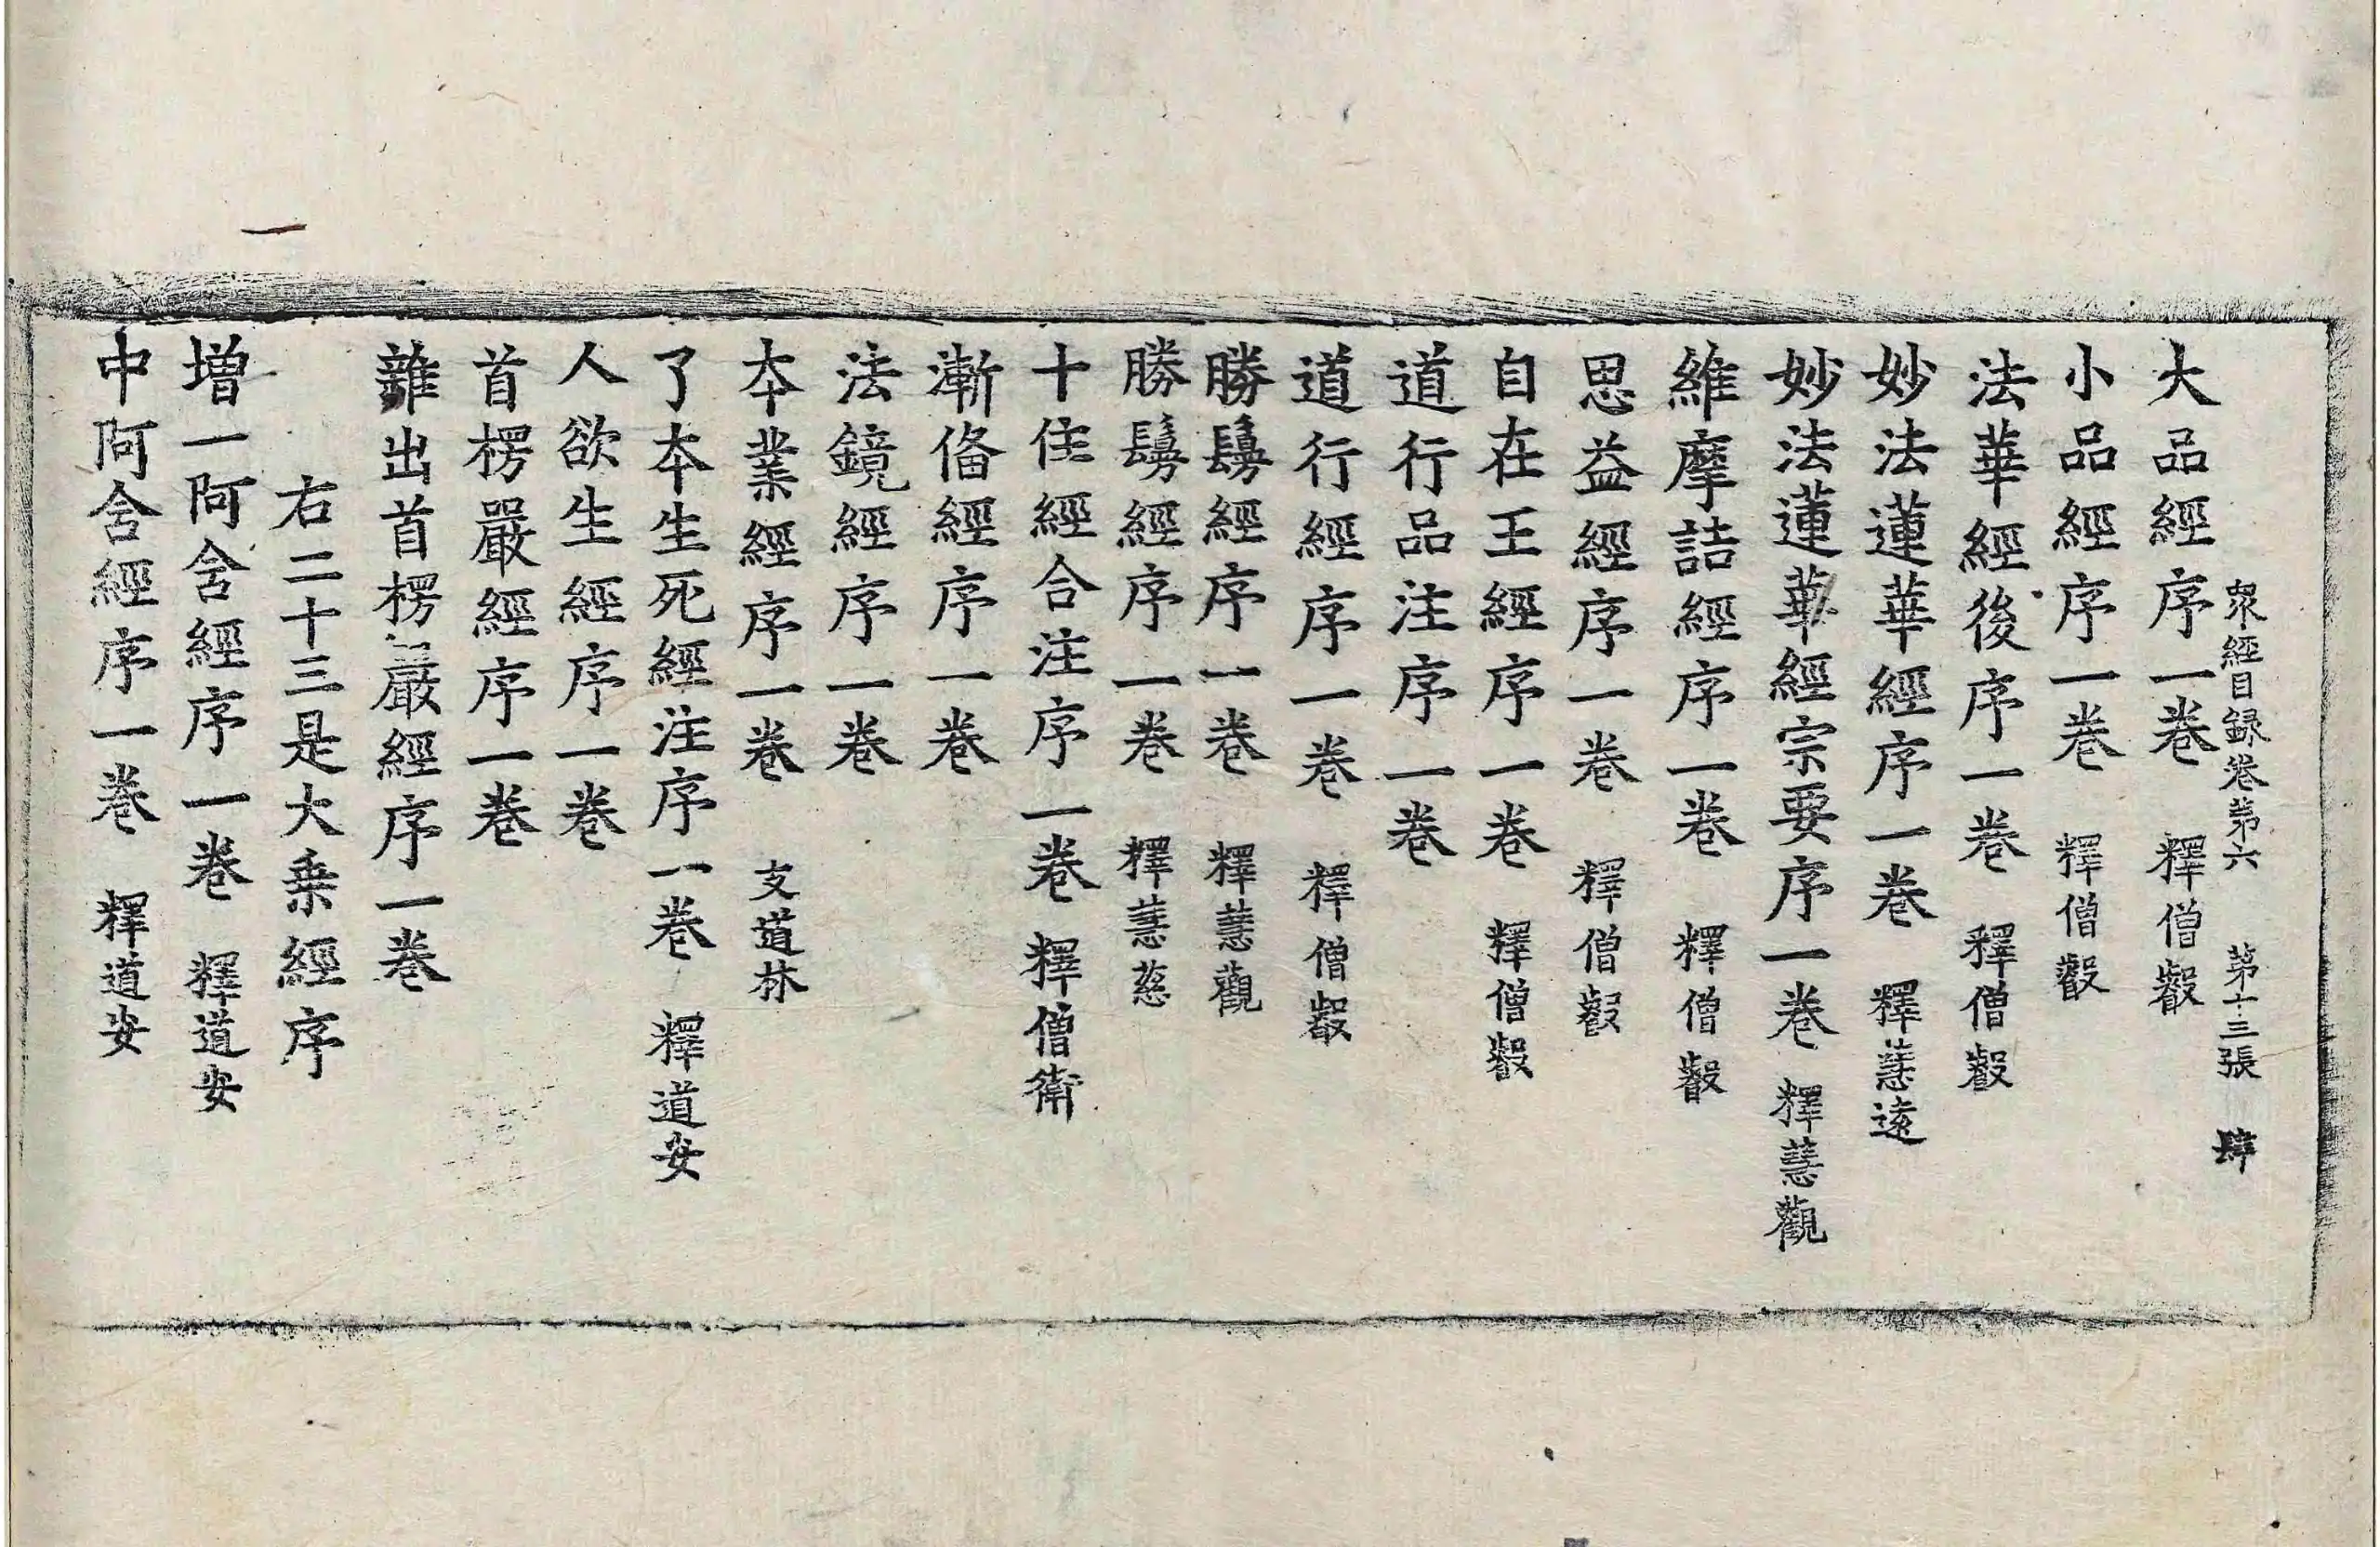 大品經序一卷　釋僧叡
衆經目録卷第六　第十三張　肆
小品經序一卷　釋僧叡
法華經後序一卷　釋僧叡
妙法蓮華經序一卷　釋慧遠
妙法蓮華經宗要序一卷　釋慧觀
維摩詰經序一卷　釋僧叡
思益經序一卷　釋僧叡
自在王經序一卷　釋僧叡
道行品注序一卷
道行經序一卷　釋僧叡
勝鬘經序一卷　釋慧觀
勝鬘經序一卷　釋慧慈
十住經合注序一卷　釋僧衛
漸俻經序一卷
法鏡經序一卷
本業經序一卷　支道林
了本生死經注序一卷　釋道安
人欲生經序一卷
首楞嚴經序一卷
雜出首楞嚴經序一卷
右二十三是大乗經序
増一阿含經序一卷　釋道安
中阿含經序一卷　釋道安
一